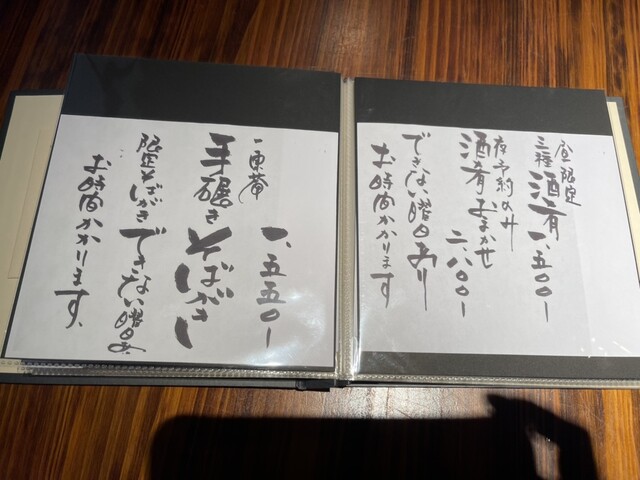 昼限定
三種酒肴 一、五〇〇ー
夜予約のみ
酒肴おまかせ
二、八〇〇ー
できない曜日あり
お時間かかります
一東菴
一、五五〇ー
手碾きそばがき
限定そばがき できない曜日あり
お時間かかります、